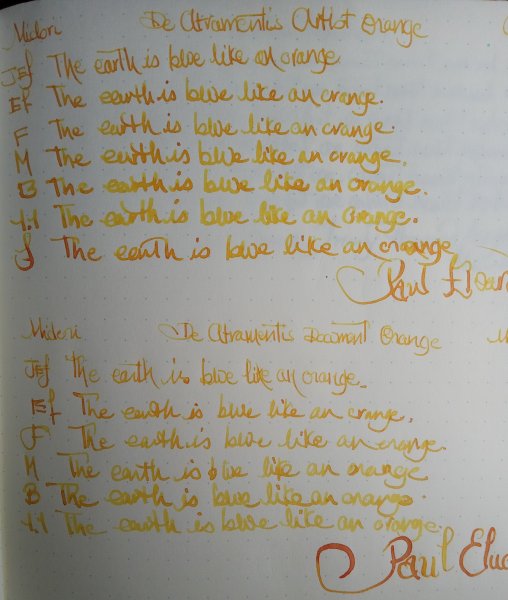 Midori De Atramentis Artist Orange
JEf The earth is blue like an orange
Ef The earth is blue like an orange.
F The earth is blue like an orange.
M The earth is blue like an orange.
B The earth is blue like an orange.
1.1 The earth is blue like an orange.
f The earth is blue like an orange
Paul Eluard
Midori De Atramentis Document Orange
JEf The earth is blue like an orange.
Ef The earth is blue like an orange.
F The earth is blue like an orange.
M The earth is blue like an orange
B The earth is blue like an orange.
1.1 The earth is blue like an orange.
Paul Elua